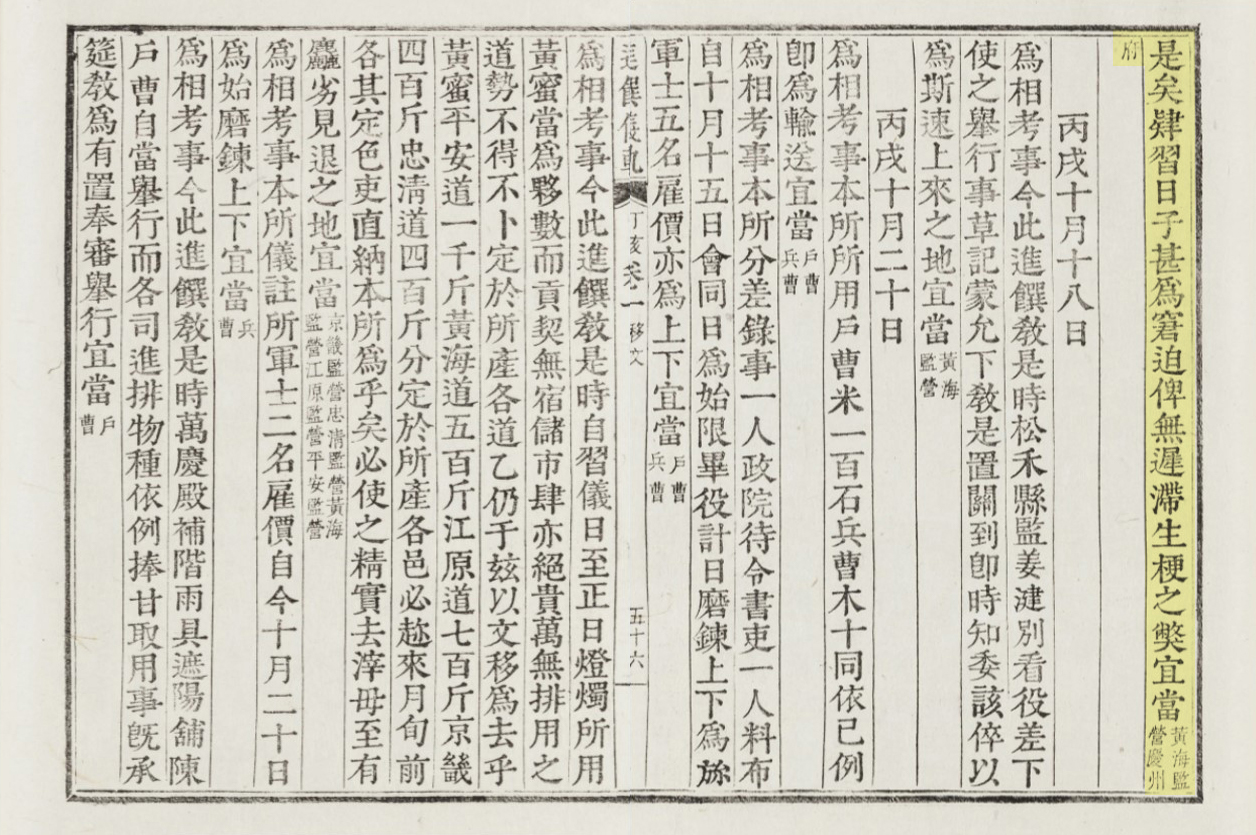 是矣肄習日子甚爲窘迫俾無遲滯生梗之獘宜當黃海監營慶州
府
丙戌十月十八日
爲相考事今此進饌敎是時松禾縣監姜湕別看役差下
使之擧行事草記蒙允下敎是置關到卽時知委該倅以
爲斯速上來之地宜當黃海監營
丙戌十月二十日
爲相考事本所所用戶曹米一百石兵曹木十同依已例
卽爲輸送宜當戶曹兵曹
爲相考事本所分差錄事一人政院待令書吏一人料布
自十月十五日會同日爲始限畢役計日磨鍊上下爲旀
軍士五名雇價亦爲上下宜當戶曹兵曹
進饌儀軌 丁亥 卷一 移文 五十六
爲相考事今此進饌敎是時自習儀日至正日燈燭所用
黃蜜當爲夥數而貢契無宿儲市肆亦絕貴萬無排用之
道勢不得不卜定於所產各道乙仍于玆以文移爲去乎
黃蜜平安道一千斤黃海道五百斤江原道七百斤京畿
四百斤忠淸道四百斤分定於所產各邑必趂來月旬前
各其定色吏直納本所爲乎矣必使之精實去滓毋至有
麤劣見退之地宜當京畿監營忠淸監營黃海監營江原監營平安監營
爲相考事本所儀註所軍士二名雇價自今十月二十日
爲始磨鍊上下宜當兵曹
爲相考事今此進饌敎是時萬慶殿補階雨具遮陽舖陳
戶曹自當擧行而各司進排物種依例捧甘取用事旣承
筵敎爲有置奉審擧行宜當戶曹